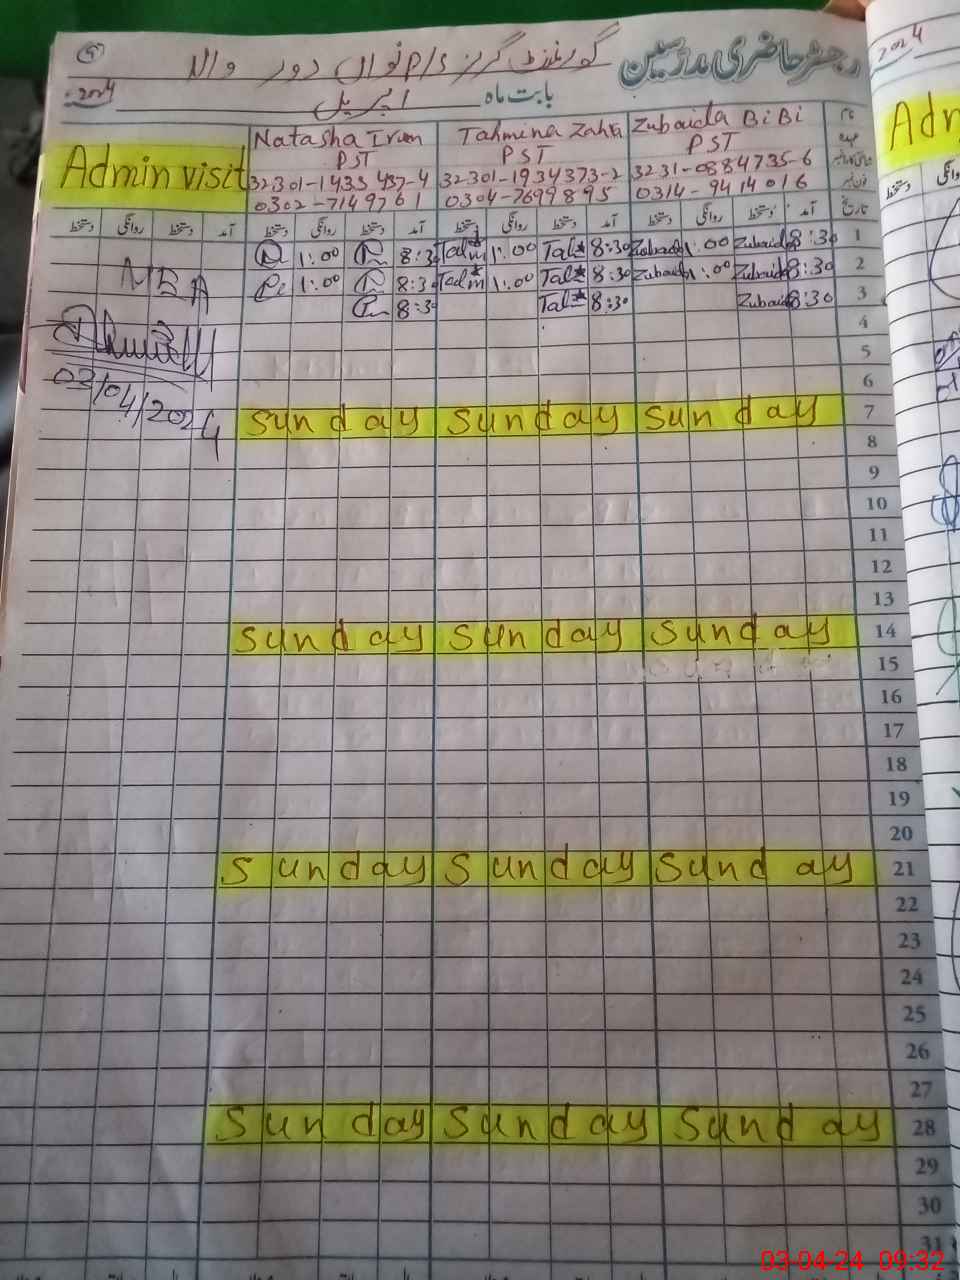 رجسٹر حاضری مدرسین گورنمنٹ گرلز پرائمری نواں دور والہ
2024 بابت ماہ اپریل
2024
Admin visit
Natasha Irum Tahmina Zahra Zubaida BiBi نام
PST PST PST عہدہ
32301-1435437-4 32301-1934373-2 3231-0884735-6
0302-7149761 0304-7699895 0314-9414016 فون نمبر
دستخط روانگی دستخط آمد دستخط روانگی دستخط آمد دستخط روانگی دستخط آمد دستخط روانگی دستخط آمد تاریخ
1:00 8:30 1:00 8:30 Zubaida 1:00 Zubaida 8:30 1
1:00 8:30 1:00 8:30 Zubaida 1:00 Zubaida 8:30 2
8:30 8:30 Zubaida 8:30 3
MEA
03/04/2024
4
5
6
Sunday Sunday Sunday 7
8
9
10
11
12
13
Sunday Sunday Sunday 14
15
16
17
18
19
20
Sunday Sunday Sunday 21
22
23
24
25
26
27
Sunday Sunday Sunday 28
29
30
31
03-04-24 09:32